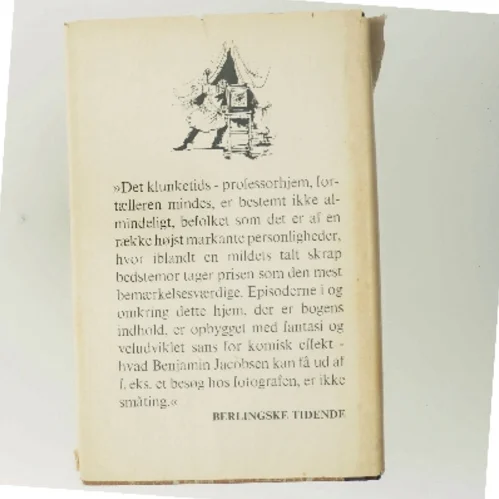 »Det klunketids - professorhjem, for-
tælleren mindes, er bestemt ikke al-
mindeligt, befolket som det er af en
række højst markante personligheder,
hvor iblandt en mildets talt skrap
bedstemor tager prisen som den mest
bemærkelsesværdige. Episoderne i og
omkring dette hjem, der er bogens
indhold, er opbygget med fantasi og
veludviklet sans for komisk effekt -
hvad Benjamin Jacobsen kan få ud af
f. eks. et besøg hos fotografen, er ikke
småting.«
BERLINGSKE TIDENDE